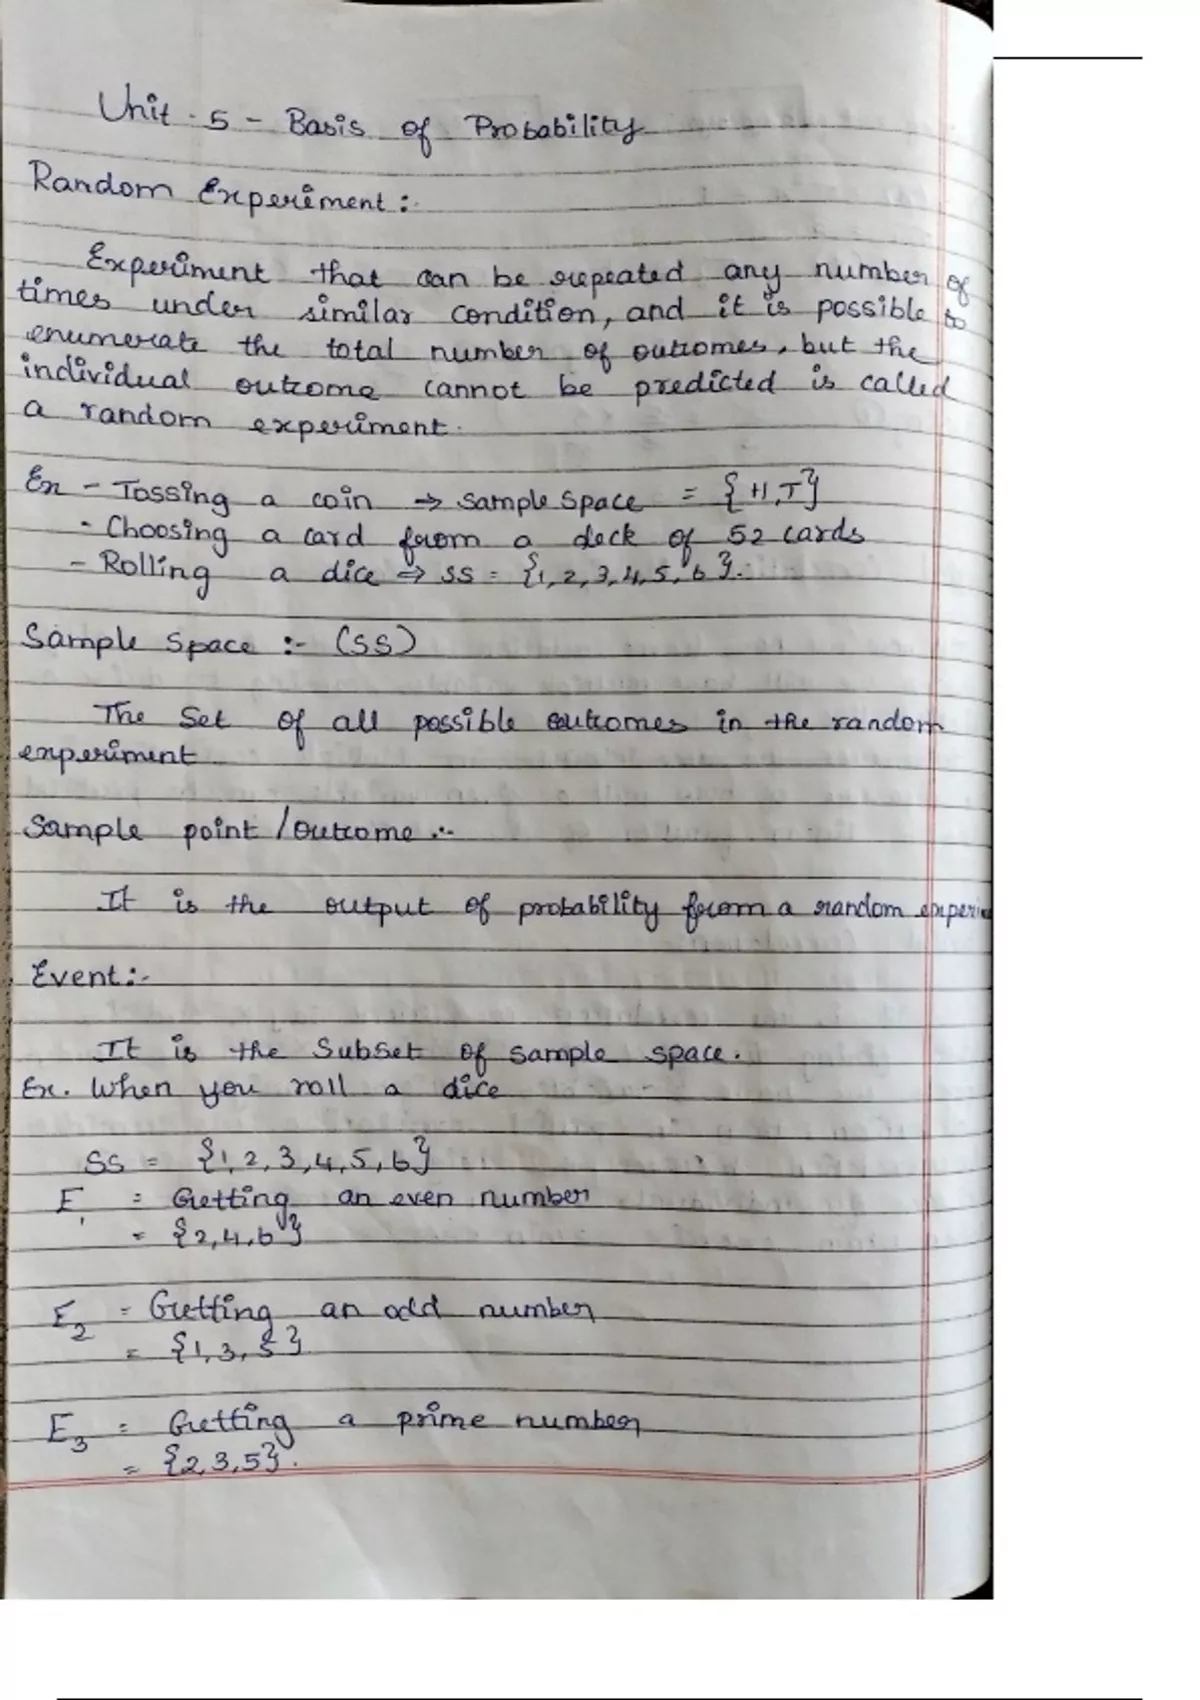 Unit - 5 - Basis of Probability
Random Experiment :-
Experiment that can be repeated any number of
times under similar condition, and it is possible to
enumerate the total number of outcomes, but the
individual outcome cannot be predicted is called
a random experiment.
Ex - Tossing a coin → Sample Space = {H,T}
- Choosing a card from a deck of 52 cards
- Rolling a dice ⇒ SS = {1,2,3,4,5,6}.
Sample Space :- (SS)
The Set of all possible outcomes in the random
experiment
Sample point / Outcome :-
It is the output of probability from a random
Event :-
It is the Subset of sample space.
Ex. When you roll a dice
SS = {1,2,3,4,5,6}
E1 = Getting an even number
= {2,4,6}
E2 = Getting an odd number
= {1,3,5}
E3 = Getting a prime number
= {2,3,5}.